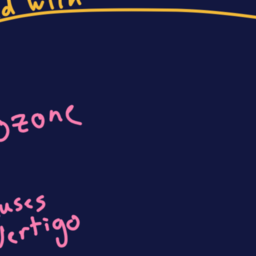 d with
ozone
uses
Vertigo